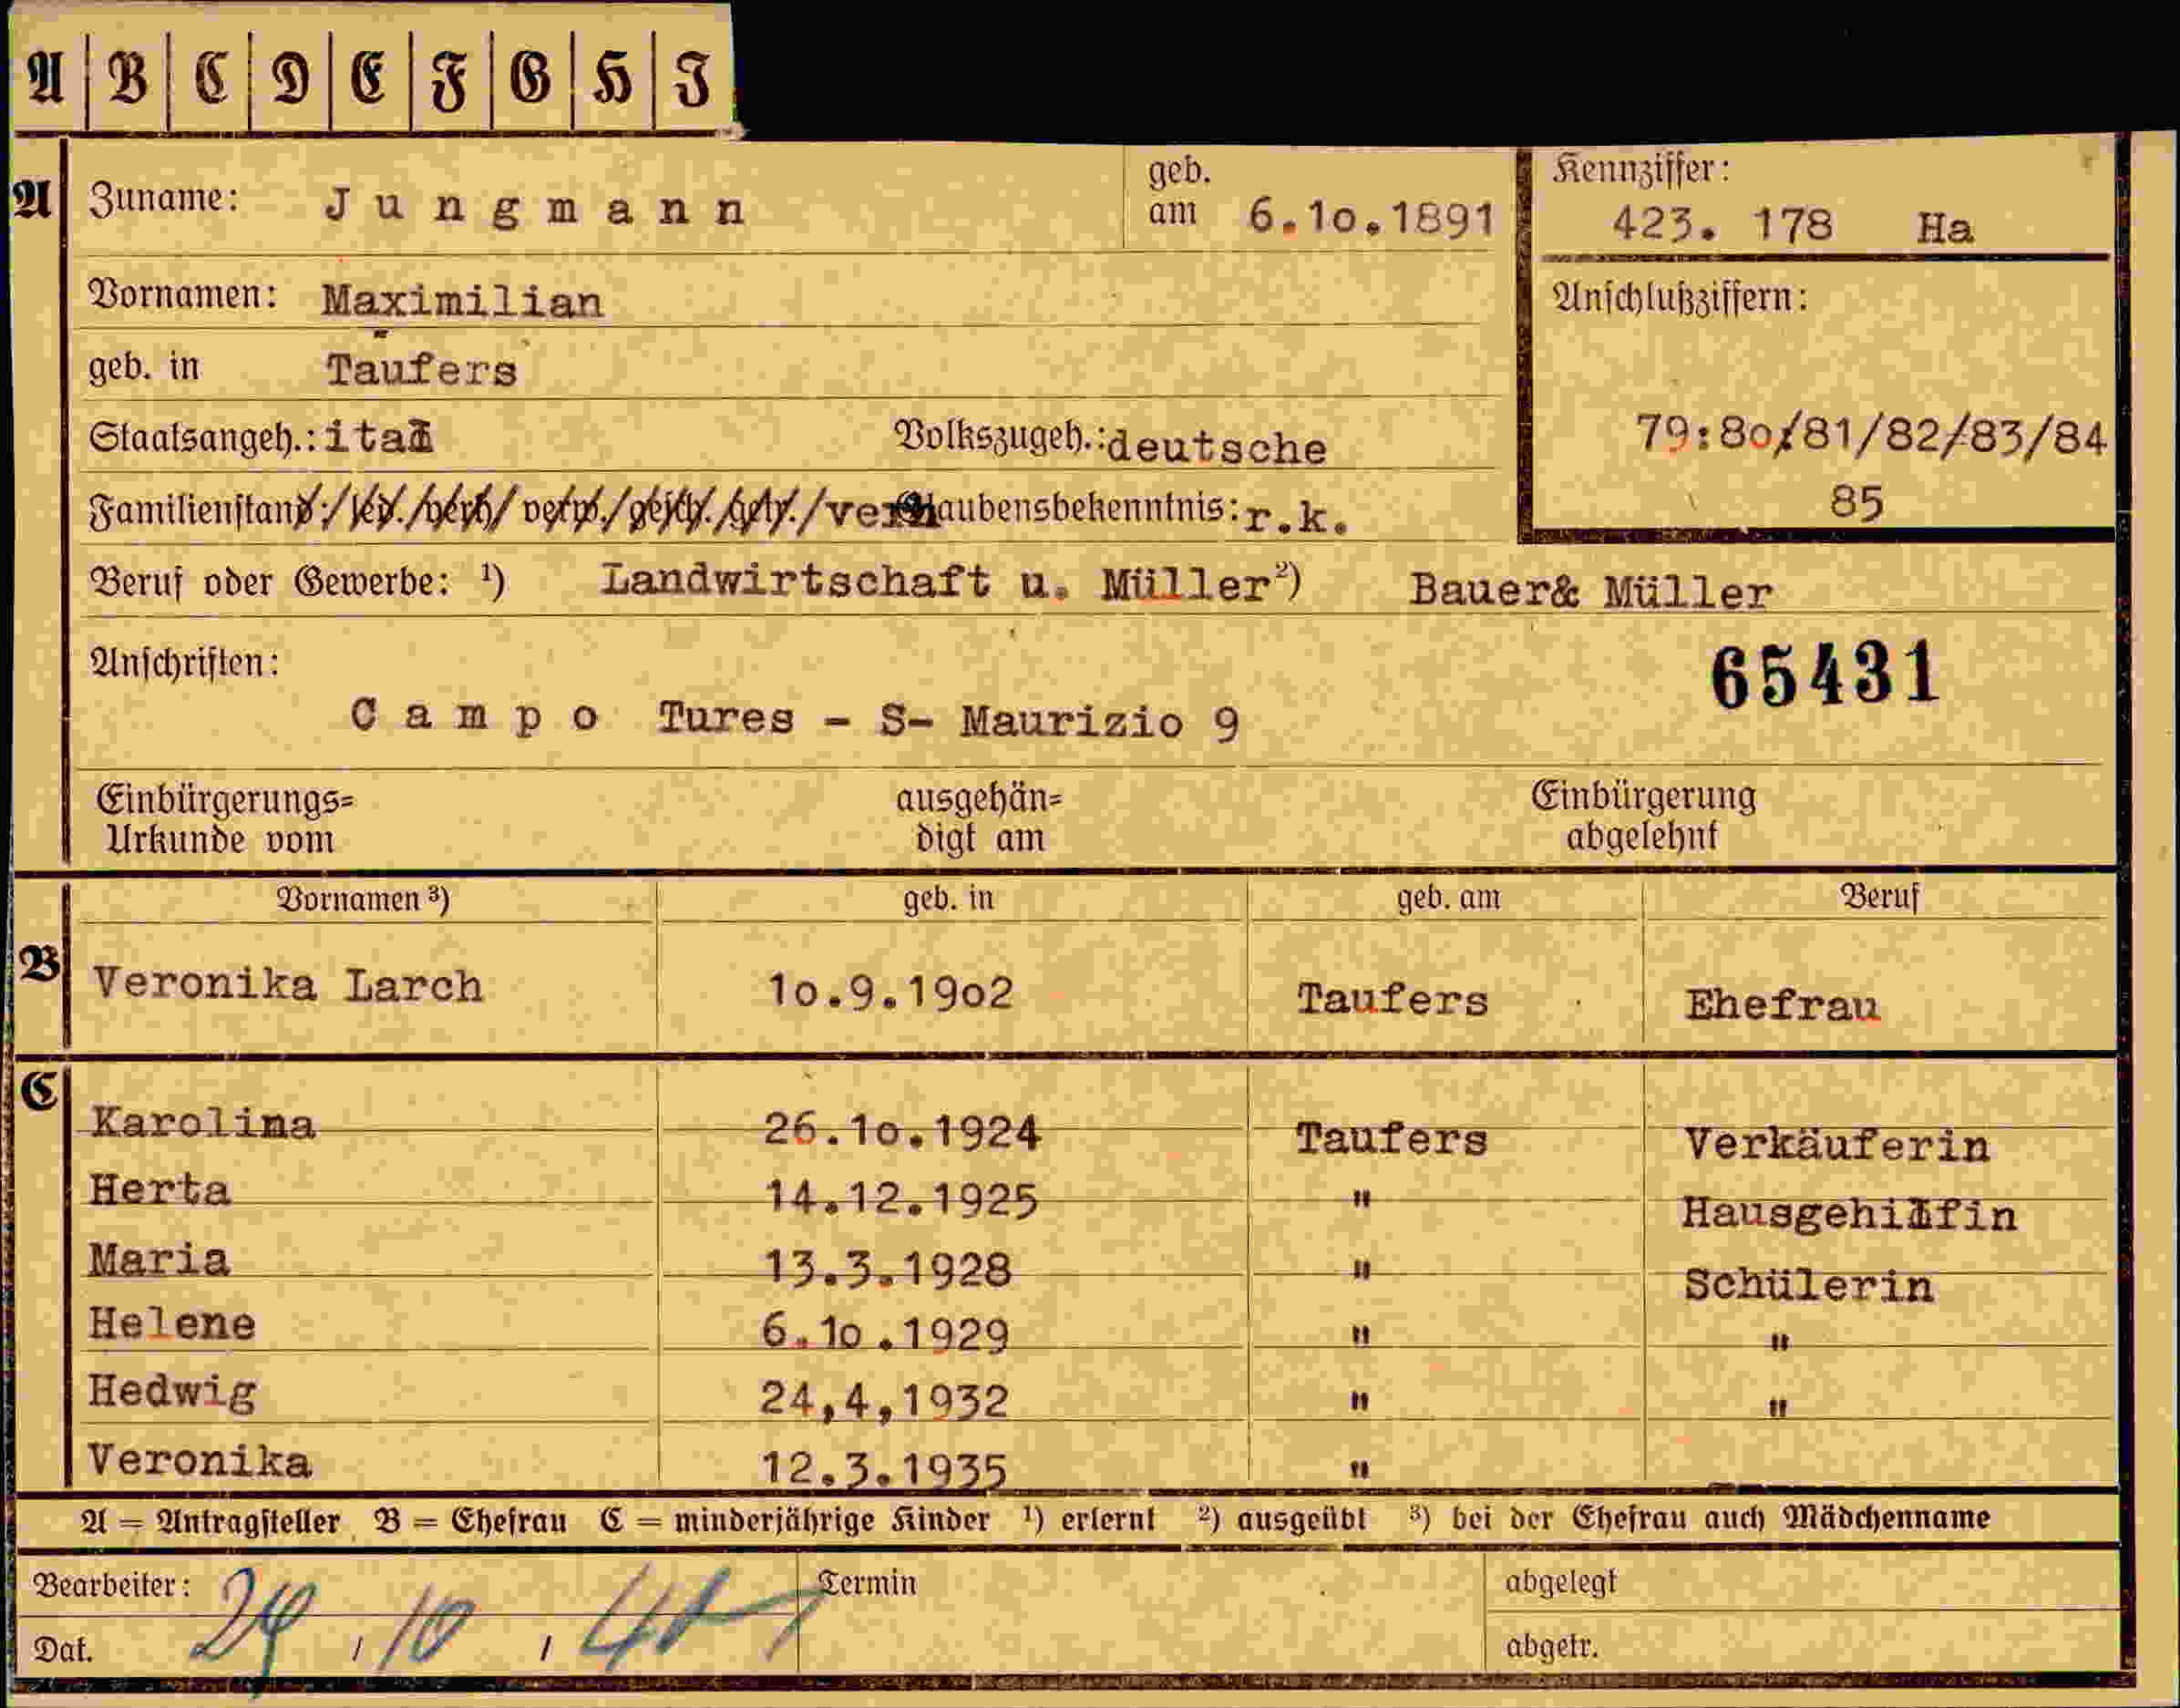 A B C D E F G H J
A Zuname: Jungmann geb. am 6.10.1891 Kennziffer: 423. 178 Ha
Vornamen: Maximilian Anschlußziffern:
geb. in Taufers
Staatsangeh.: ital Volkszugeh.: deutsche 79:80/81/82/83/84
Familienstand: / led. / verh / verw. / gesch. / getr. / verh Glaubensbekenntnis: r.k. 85
Beruf oder Gewerbe: ¹) Landwirtschaft u. Müller ²) Bauer& Müller
Anschriften: 65431
Campo Tures - S- Maurizio 9
Einbürgerungs= ausgehän= Einbürgerung
Urkunde vom digt am abgelehnt
Vornamen ³) geb. in geb. am Beruf
B Veronika Larch 10.9.1902 Taufers Ehefrau
C
Karolina 26.10.1924 Taufers Verkäuferin
Herta 14.12.1925 " Hausgehilfin
Maria 13.3.1928 " Schülerin
Helene 6.10.1929 " "
Hedwig 24,4,1932 " "
Veronika 12.3.1935 "
A = Antragsteller B = Ehefrau C = minderjährige Kinder ¹) erlernt ²) ausgeübt ³) bei der Ehefrau auch Mädchenname
Bearbeiter: Termin abgelegt
Dat. / 10 / abgetr.